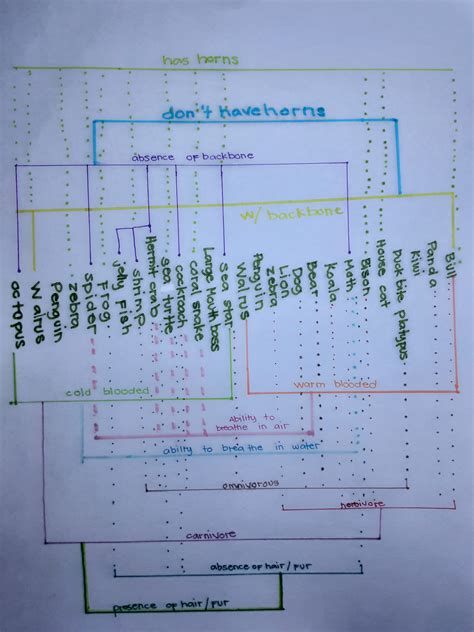 has horns
don't have horns
absence of backbone
w/ backbone
octopus
Walrus
Penguin
zebra
Spider
Frog
Jelly Fish
shrimp
Hermit crab
sea turtle
cockroach
coral snake
Large Mouth bass
Sea star
Walrus
Penguin
zebra
Lion
Dog
Bear
Koala
Moth
Bison
House cat
Duck bile platypos
Kiwi
Panda
Bull
cold blooded
warm blooded
Ability to
breathe in air
ability to breathe in water
omnivorous
herbivore
carnivore
absence of hair/fur
presence of hair/fur